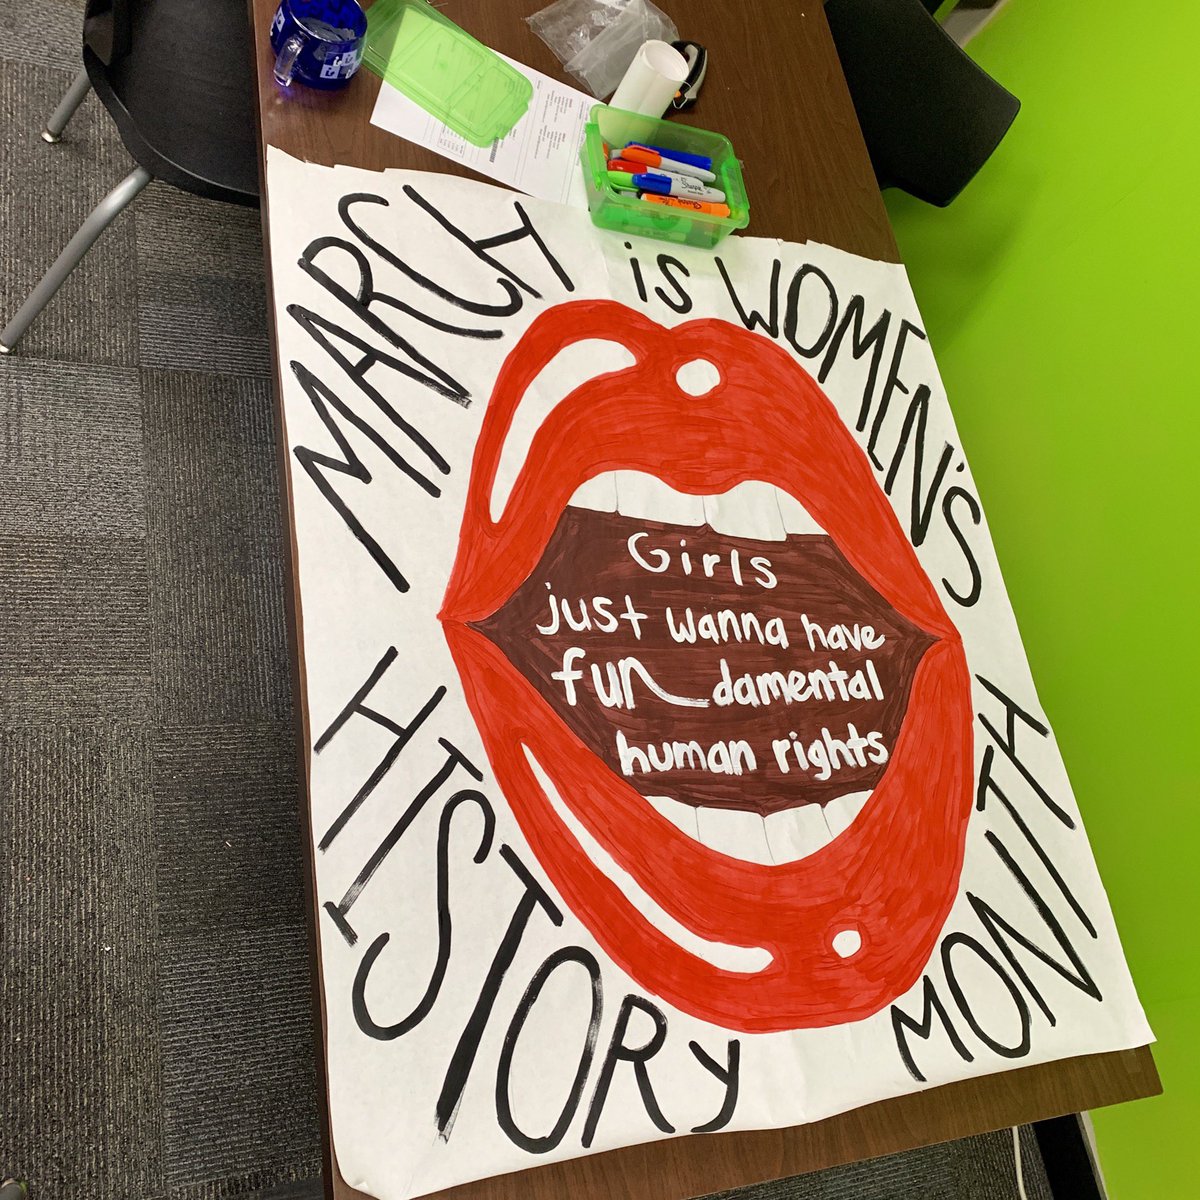 MARCH is WOMEN'S
HISTORY MONTH
Girls
just wanna have
fundamental
human rights
Sharpie